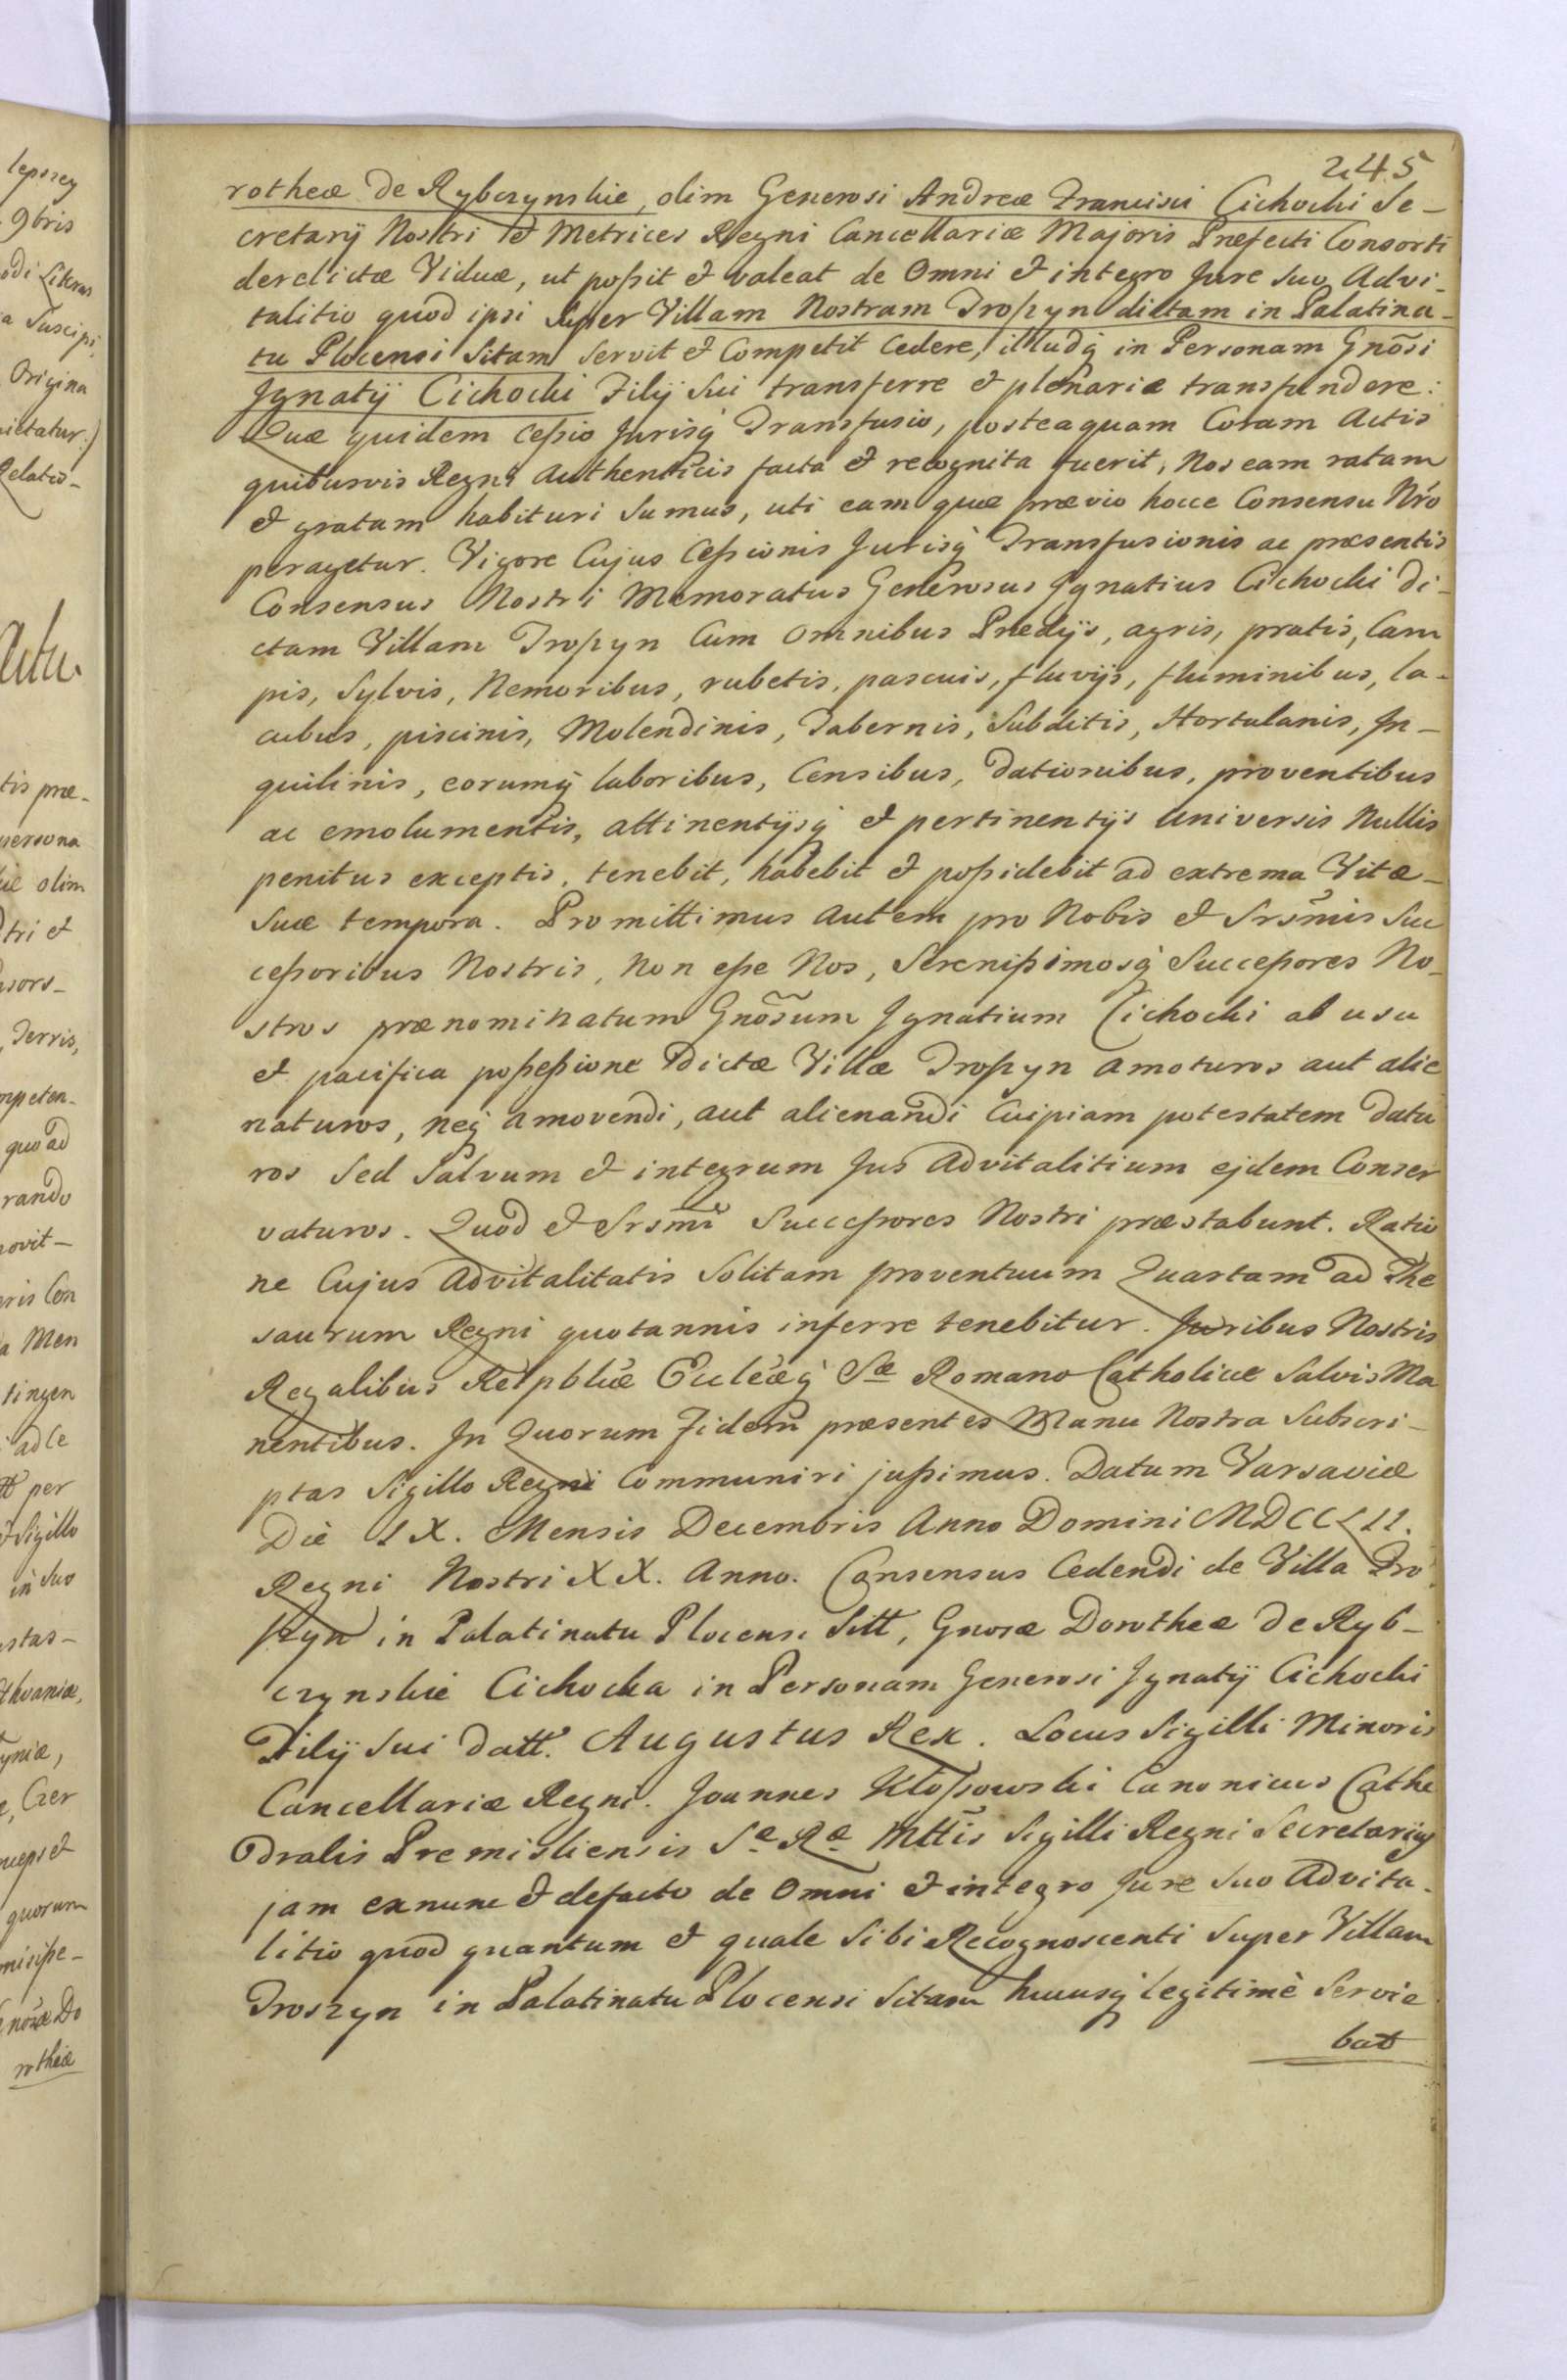 245
rotheæ de Rybczynskie, olim Generosi Andreæ Francisci Cichocki Se-
cretarij Nostri & Metrices Regni Cancellariæ Majoris Præfecti Consorti
derelictæ Viduæ, ut poßit & valeat de Omni & integro Jure suo Advi-
talitio quod ipsi super Villam Nostram Troszyn dictam in Palatina-
tu Plocensi Sitam Servit & Competit Cedere, illudq in Personam Gnõsi
Jgnatij Cichocki Filij Sui transferre & plenariæ transfundere:
Quæ quidem Ceßio Jurisq Transfusio, posteaquam Coram Actis
quibusvis Regni Authenticis facta & recognita fuerit, Nos eam ratam
& gratam habituri Sumus, uti eam quæ prævio hocce Consensu Nr̃o
peragetur. Vigore Cujus Ceßionis Jurisq Transfusionis ac præsentis
Consensus Nostri Memoratus Generosus Jgnatius Cichocki di-
ctam Villam Troszyn Cum Omnibus Prædijs, agris, pratis, Cam
pis, Sylvis, Nemoribus, rubetis, pascuis, fluvijs, fluminibus, la-
cubus, piscinis, Molendinis, Tabernis, Subditis, Hortulanis, Jn-
quilinis, eorumq laboribus, Censibus, dationibus, proventibus
ac emolumentis, attinentijsq & pertinentijs Universis Nullis
penitus exceptis, tenebit, habebit & poßidebit ad extrema Vitæ-
Suæ tempora. Promittimus Autem pro Nobis & Srs̃mis Suc
ceßoribus Nostris, Non eße Nos, Serenißimosq Succeßores No-
stros prænominatum Gnõsum Jgnatium Cichocki ab usu
& pacifica poßeßione Dictæ Villæ Troszyn amoturos aut alie
naturos, neq amovendi, aut alienandi Cuipiam potestatem datu
ros Sed Salvum & integrum Jus Advitalitium ejdem Conser
vaturos. Quod & Srsm̃i Succeßores Nostri præstabunt. Ratio
ne Cujus Advitalitatis Solitam proventuum Quartam ad The
saurum Regni quotannis inferre tenebitur. Juribus Nostris
Regalibus Reipblicæ Eccleæq Sæ Romano Catholicæ Salvis Ma
nentibus. Jn Quorum Fidem præsentes Manu Nostra Subscri-
ptas Sigillo Regni Communiri jußimus. Datum Varsaviæ
Die IX. Mensis Decembris Anno Domini MDCCLII.
Regni Nostri XX. Anno. Consensus Cedendi de Villa Tro
szyn in Palatinatu Plocensi Sitt, Gnosæ Dorotheæ de Ryb-
czynskie Cichocka in Personam Generosi Jgnatij Cichocki
Filij Sui datt. Augustus Rex. Locus Sigilli Minoris
Cancellariæ Regni. Joannes Kloßowski Canonicus Cathe
dralis Premisliensis Sæ Ræ Mttis Sigilli Regni Secretarius
jam exnunc & defacto de Omni & integro Jure Suo Advita-
litio quod quantum & quale Sibi Recognoscenti Super Villam
Troszyn in Palatinatu Plocensi Sitam hucusq legitimè Servie
bat
lepszey
9bris
odi Literas
a Suscipi
Origina
Relatio-
Actu
tis præ-
persona
olim
tri et
Terris,
mpeten-
quoad
rando
novit-
ris Con
a Men
tingen
ad Ce
tt per
& Sigillo
in Suo
thvaniæ,
yniæ,
Czer
nceps et
quorum
Gnosæ Do
rotheæ